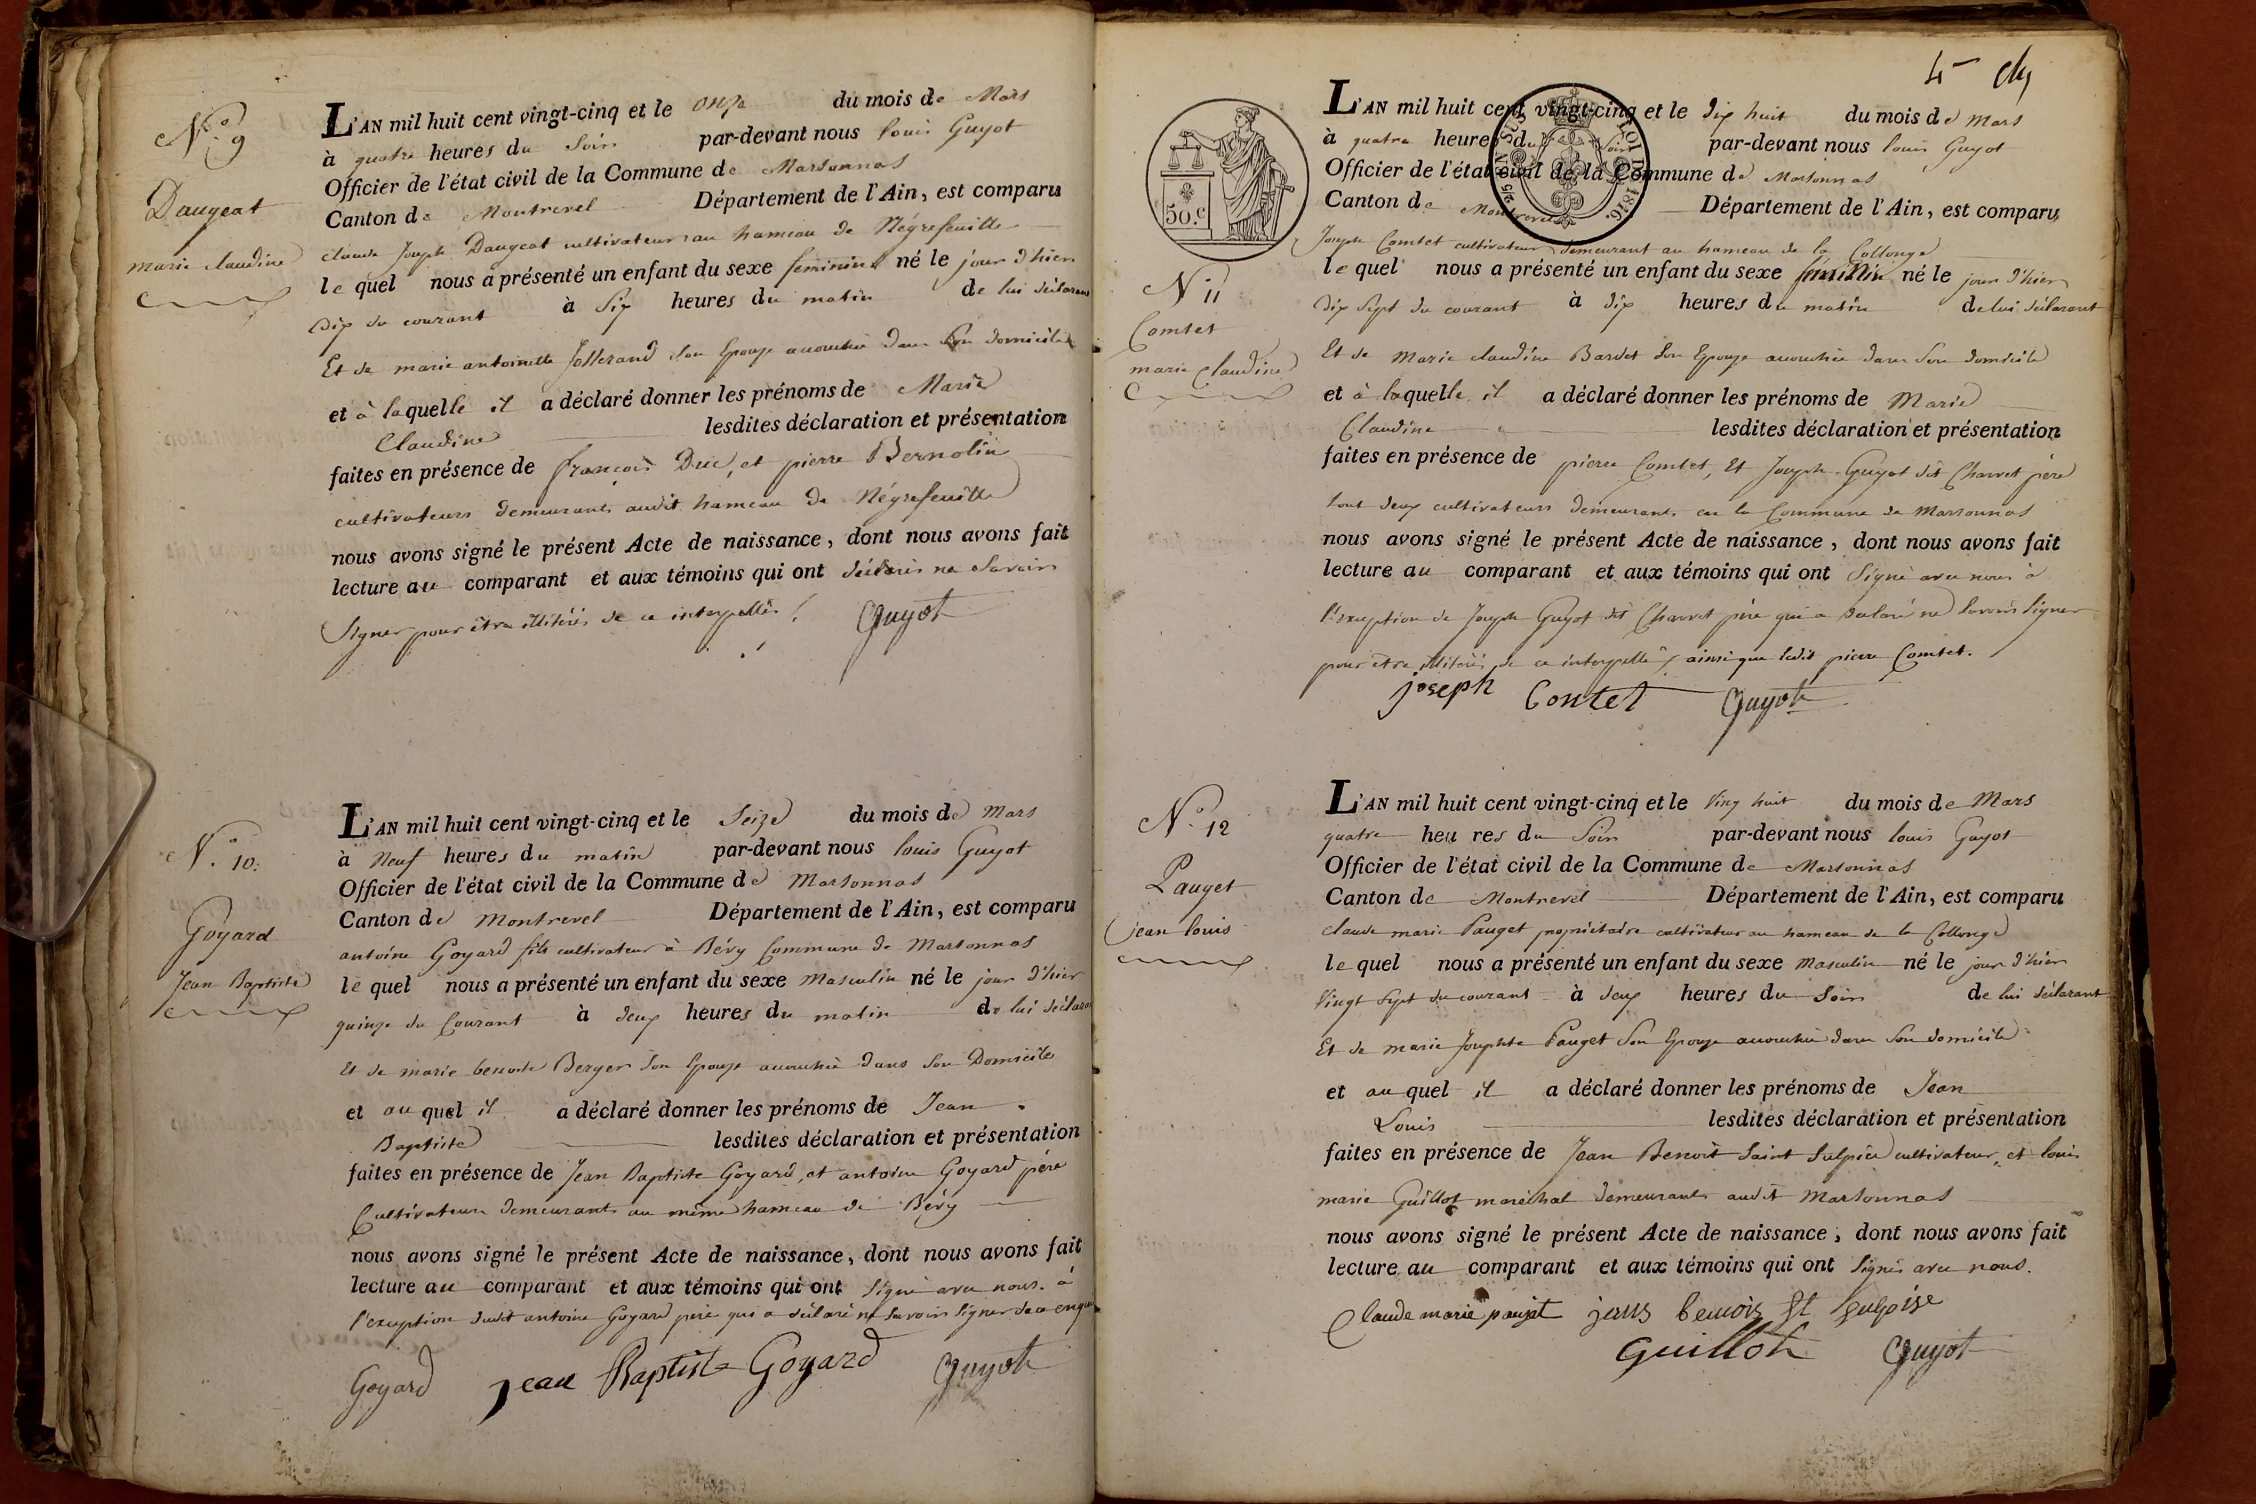 N.° 9
Daugeat
marie claudine
L'AN mil huit cent vingt-cinq et le onze du mois de Mars
à quatre heures du Soir par-devant nous louis Guyot
Officier de l'état civil de la Commune de Marsonnas
Canton de Montrevel Département de l'Ain, est comparu
claude Joseph Daugeat cultivateur au hameau de Négrefeuille
le quel nous a présenté un enfant du sexe feminin né le jour d'hier
dix du courant à Six heures du matin de lui déclarant
Et de marie antoinette Josserand Son Epouze accouchée dans Son domicile
et à laquelle il a déclaré donner les prénoms de Marie
Claudine lesdites déclaration et présentation
faites en présence de françois Duc, et pierre Bernolin
cultivateurs demeurants audit hameau de Négrefeuille
nous avons signé le présent Acte de naissance, dont nous avons fait
lecture au comparant et aux témoins qui ont déclarés ne Savoir
Signer pour être illitérés de ce interpellés / Guyot
N.° 10.
Goyard
Jean Baptiste
L'AN mil huit cent vingt-cinq et le Seize du mois de Mars
à Neuf heures du matin par-devant nous louis Guyot
Officier de l'état civil de la Commune de Marsonnas
Canton de Montrevel Département de l'Ain, est comparu
antoine Goyard fils cultivateur à Bévy Commune de Marsonnas
le quel nous a présenté un enfant du sexe Masculin né le jour d'hier
quinze du Courant à deux heures du matin de lui déclarant
Et de marie benoite Berger Son Epouze accouchée dans Son Domicile
et au quel il a déclaré donner les prénoms de Jean
Baptiste lesdites déclaration et présentation
faites en présence de Jean Baptiste Goyard, et antoine Goyard père
Cultivateurs demeurants au même hameau de Bévy
nous avons signé le présent Acte de naissance, dont nous avons fait
lecture au comparant et aux témoins qui ont Signé avec nous. à
l'exception dudit antoine Goyard père qui a déclaré ne Savoir Signer de ce enquis
Goyard jean Baptiste Goyard Guyot
4
50.c
1816.
N.° 11
Comtet
marie Claudine
L'AN mil huit cent vingt-cinq et le dix huit du mois de Mars
à quatre heures du Soir par-devant nous louis Guyot
Officier de l'état civil de la Commune de Marsonnas
Canton de Montrevel Département de l'Ain, est comparu
Joseph Comtet cultivateur demeurant au hameau de la Collonge
le quel nous a présenté un enfant du sexe féminin né le jour d'hier
dix Sept du courant à dix heures du matin de lui déclarant
Et de Marie claudine Bardet Son Epouze accouchée dans Son domicile
et à laquelle il a déclaré donner les prénoms de Marie
Claudine lesdites déclaration et présentation
faites en présence de pierre Comtet, Et Joseph Guyot dit Charvet père
tout deux cultivateurs demeurants en la Commune de Marsonnas
nous avons signé le présent Acte de naissance, dont nous avons fait
lecture au comparant et aux témoins qui ont Signé avec nous à
l'exception de Joseph Guyot dit Charvet père qui a déclaré ne Savoir Signer
pour être illitérés de ce interpellé / ainsi que ledit pierre Comtet.
joseph Contet Guyot
N.° 12
Pauget
jean louis
L'AN mil huit cent vingt-cinq et le Ving huit du mois de Mars
quatre heu res du Soir par-devant nous louis Guyot
Officier de l'état civil de la Commune de Marsonnas
Canton de Montrevel Département de l'Ain, est comparu
claude marie Pauget propriétaire cultivateur au hameau de la Collonge
le quel nous a présenté un enfant du sexe Masculin né le jour d'hier
Vingt Sept du courant à deux heures du Soir de lui déclarant
Et de marie Josephte Pauget Son Epouze accouchée dans Son domicile
et au quel il a déclaré donner les prénoms de Jean
Louis lesdites déclaration et présentation
faites en présence de Jean Benoit Saint Sulpice cultivateur, et louis
marie Guillot maréchal demeurants audit Marsonnas
nous avons signé le présent Acte de naissance, dont nous avons fait
lecture au comparant et aux témoins qui ont Signés avec nous.
Claude marie paujet jean benoit St Sulpise
Guillot Guyot